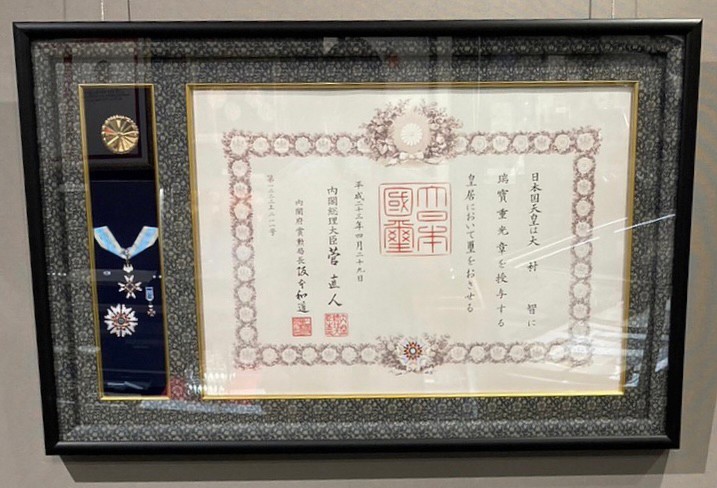 日本国天皇は大村智に
瑞寶重光章を授与する
皇居において璽をおさせる
大日本國璽
平成二十三年四月二十九日
内閣総理大臣菅直人
内閣府賞勲局長阪本和道